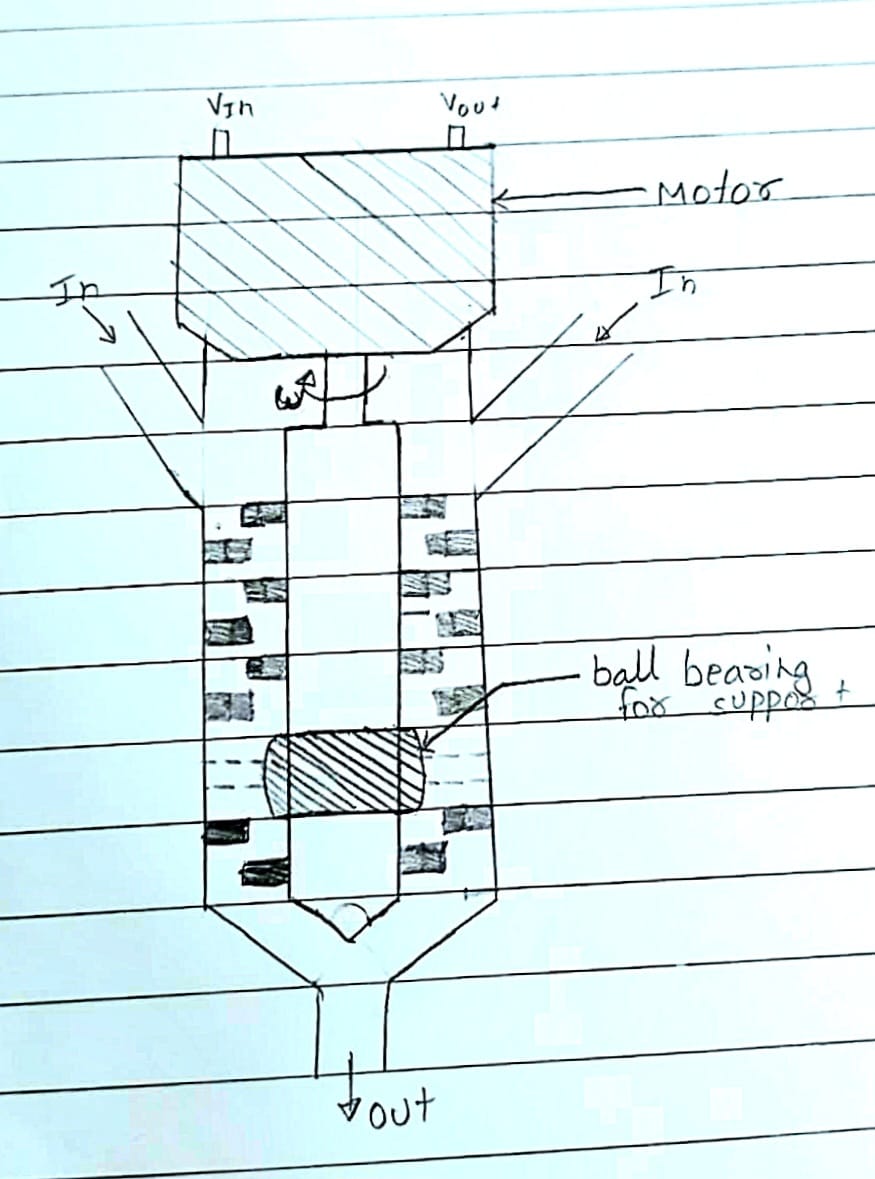 VIn
Vout
Motor
In
In
ω
ball bearing
for support
out